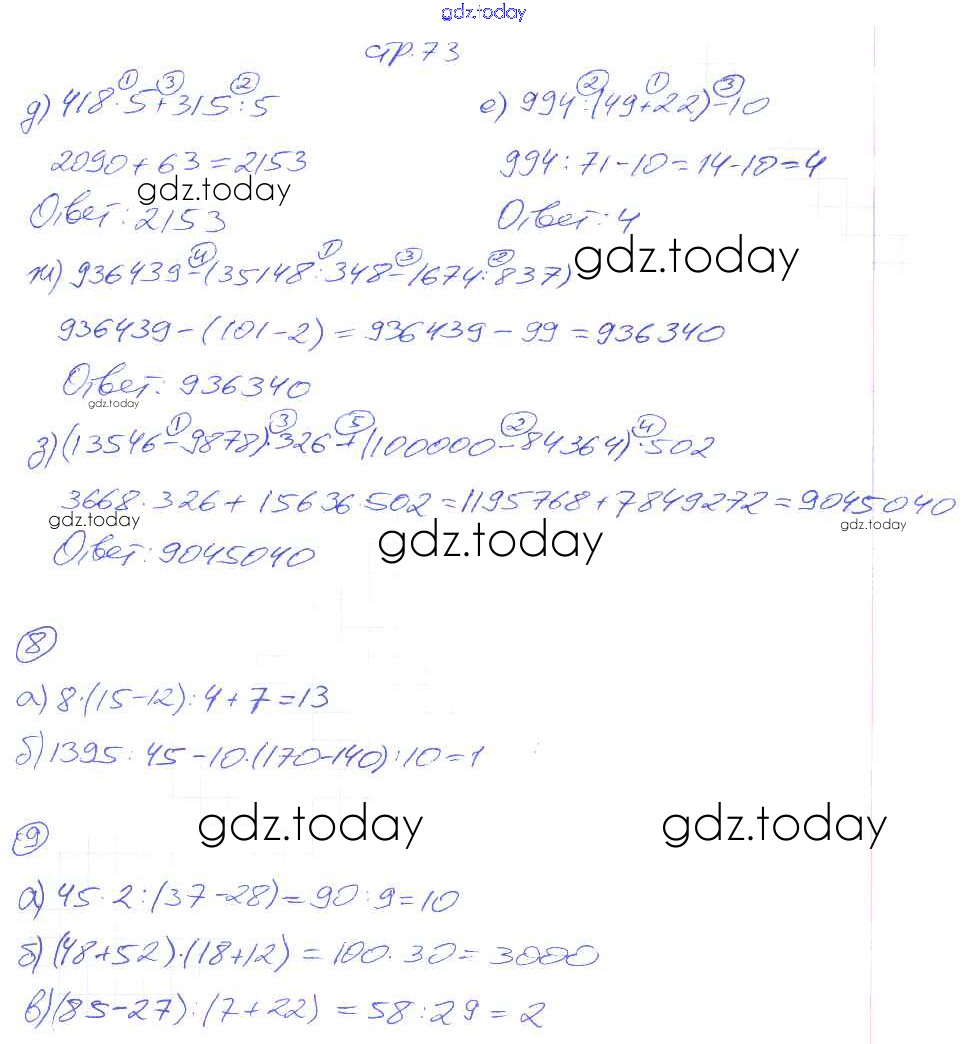 gdz.today
стр. 73
д) 418 · 5 + 315 : 5
1 3 2
2090 + 63 = 2153
gdz.today
Ответ: 2153
е) 994 : (49 + 22) - 10
2 1 3
994 : 71 - 10 = 14 - 10 = 4
Ответ: 4
gdz.today
ж) 936439 - (35148 : 348 - 1674 : 837)
4 1 3 2
936439 - (101 - 2) = 936439 - 99 = 936340
Ответ: 936340
gdz.today
з) (13546 - 9878) · 326 + (100000 - 84364) · 502
1 3 5 2 4
3668 · 326 + 15636 · 502 = 1195768 + 7849272 = 9045040
gdz.today
gdz.today
gdz.today
Ответ: 9045040
8
а) 8 · (15 - 12) : 4 + 7 = 13
б) 1395 : 45 - 10 · (170 - 140) : 10 = 1
gdz.today
gdz.today
9
а) 45 · 2 : (37 - 28) = 90 : 9 = 10
б) (48 + 52) · (18 + 12) = 100 · 30 = 3000
в) (85 - 27) : (7 + 22) = 58 : 29 = 2